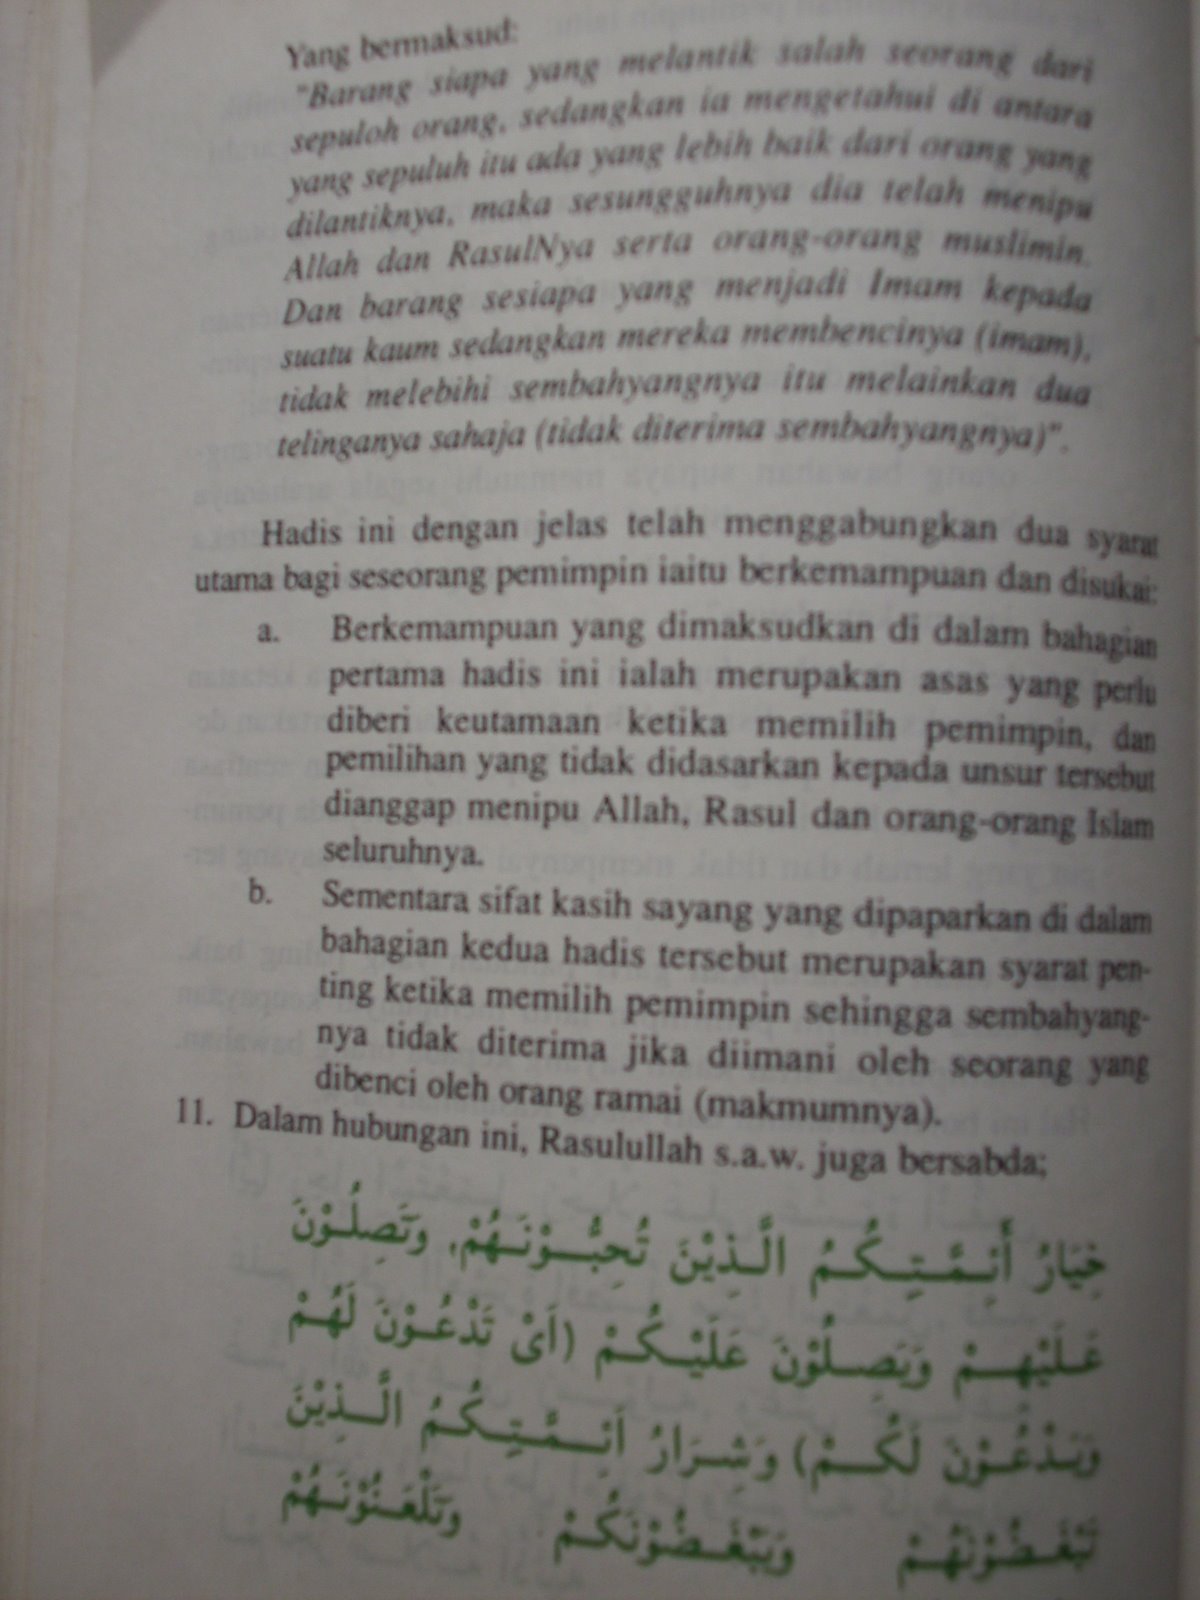 Yang bermaksud:
"Barang siapa yang melantik salah seorang dari
sepuloh orang, sedangkan ia mengetahui di antara
yang sepuluh itu ada yang lebih baik dari orang yang
dilantiknya, maka sesungguhnya dia telah menipu
Allah dan RasulNya serta orang-orang muslimin.
Dan barang sesiapa yang menjadi Imam kepada
suatu kaum sedangkan mereka membencinya (imam),
tidak melebihi sembahyangnya itu melainkan dua
telinganya sahaja (tidak diterima sembahyangnya)".
Hadis ini dengan jelas telah menggabungkan dua syarat
utama bagi seseorang pemimpin iaitu berkemampuan dan disukai:
a. Berkemampuan yang dimaksudkan di dalam bahagian
pertama hadis ini ialah merupakan asas yang perlu
diberi keutamaan ketika memilih pemimpin, dan
pemilihan yang tidak didasarkan kepada unsur tersebut
dianggap menipu Allah, Rasul dan orang-orang Islam
seluruhnya.
b. Sementara sifat kasih sayang yang dipaparkan di dalam
bahagian kedua hadis tersebut merupakan syarat pen-
ting ketika memilih pemimpin sehingga sembahyang-
nya tidak diterima jika diimani oleh seorang yang
dibenci oleh orang ramai (makmumnya).
11. Dalam hubungan ini, Rasulullah s.a.w. juga bersabda;
خِيَارُ أَئِمَّتِكُمُ الَّذِيْنَ تُحِبُّوْنَهُمْ، وَتَصِلُوْنَ
عَلَيْهِمْ وَيَصِلُوْنَ عَلَيْكُمْ (اَىْ تَدْعُوْنَ لَهُمْ
وَيَدْعُوْنَ لَكُمْ) وَشِرَارُ اَئِمَّتِكُمُ الَّذِيْنَ
تَبْغَضُوْنَهُمْ وَيَبْغَضُوْنَكُمْ وَتَلْعَنُوْنَهُمْ